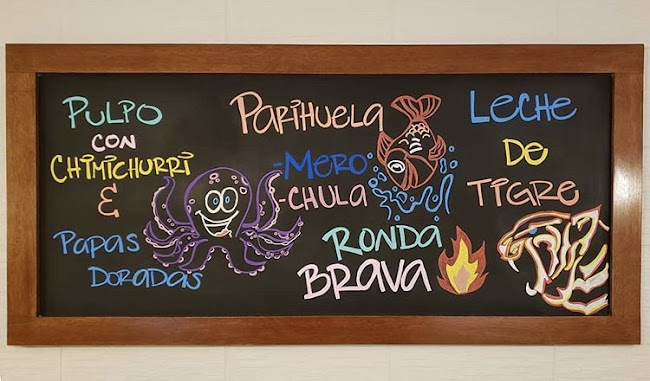 Pulpo
con
Chimichurri
&
Papas
Doradas
Parihuela
-Mero
-Chula
Ronda
Brava
Leche
De
Tigre